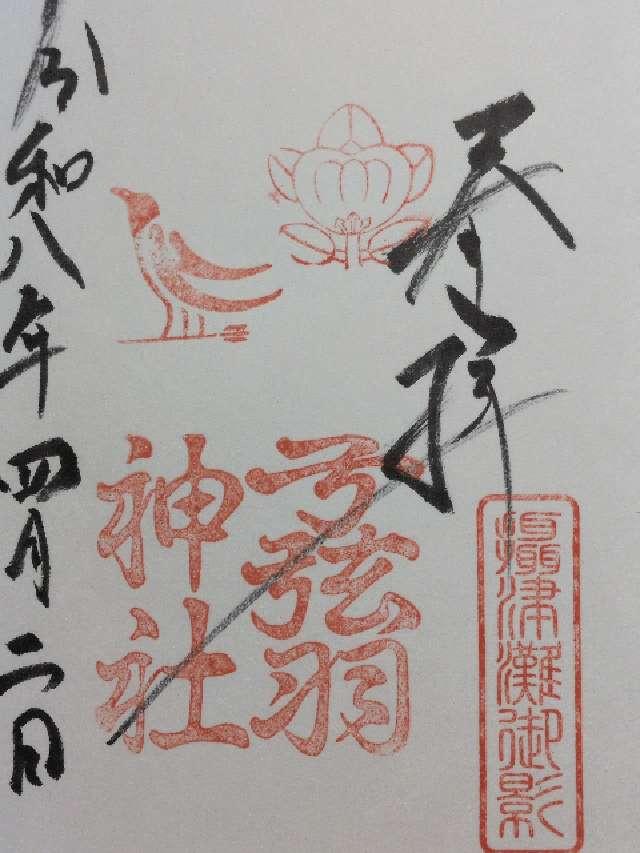 奉拝
攝津灘御影
弓弦羽
神社
令和八年四月二日